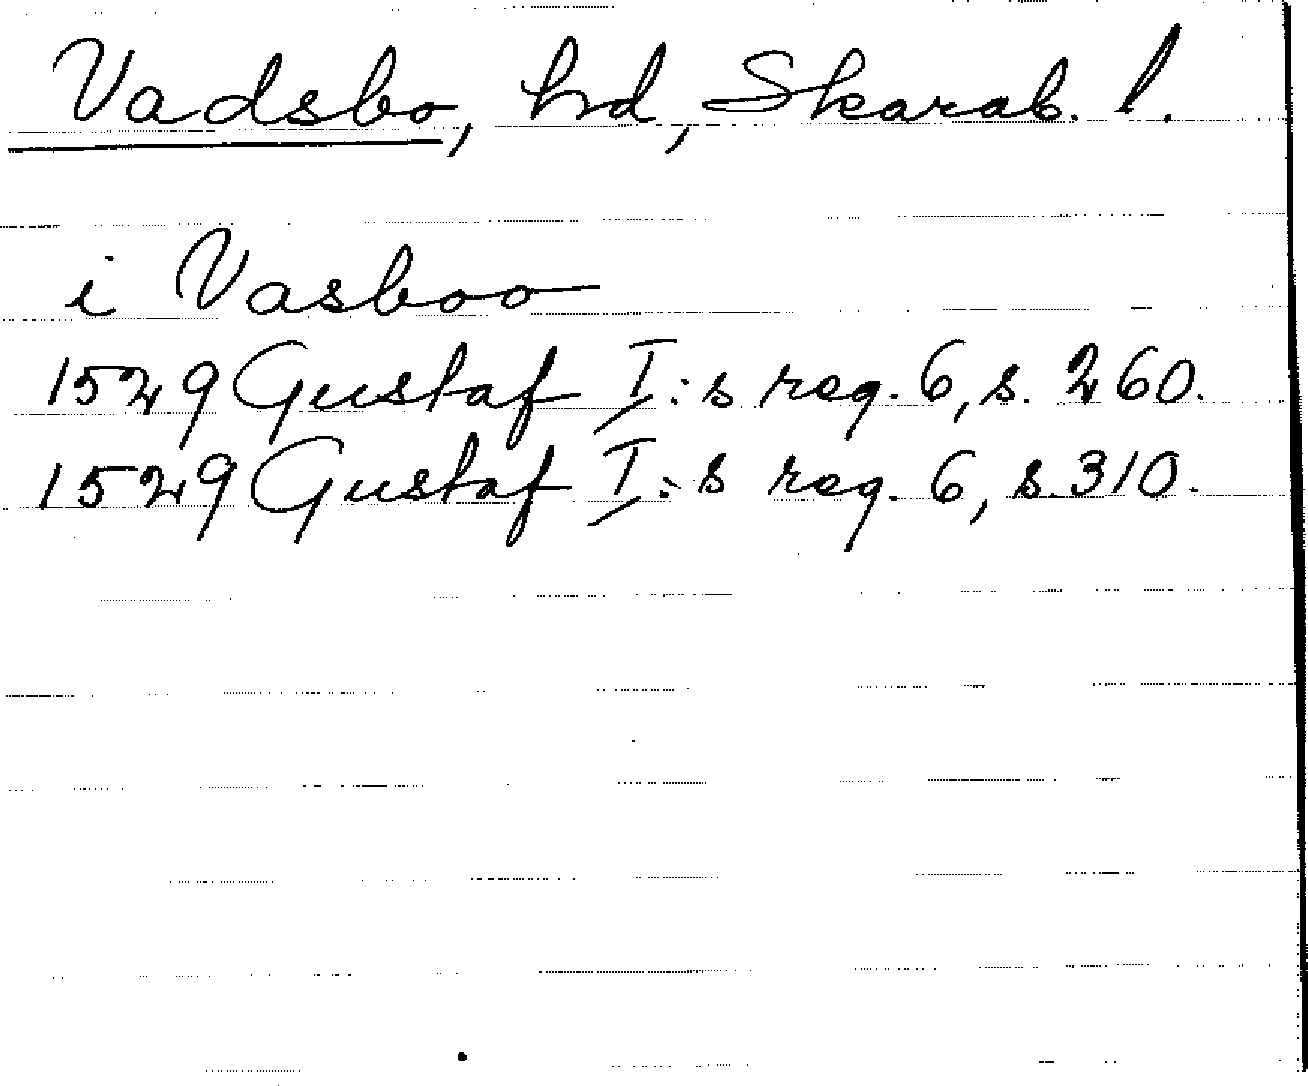 Vadsbo, hd, Skarab. l.
i Vasboo
1529 Gustaf I:s reg. 6, s. 260.
1529 Gustaf I:s reg. 6, s. 310.